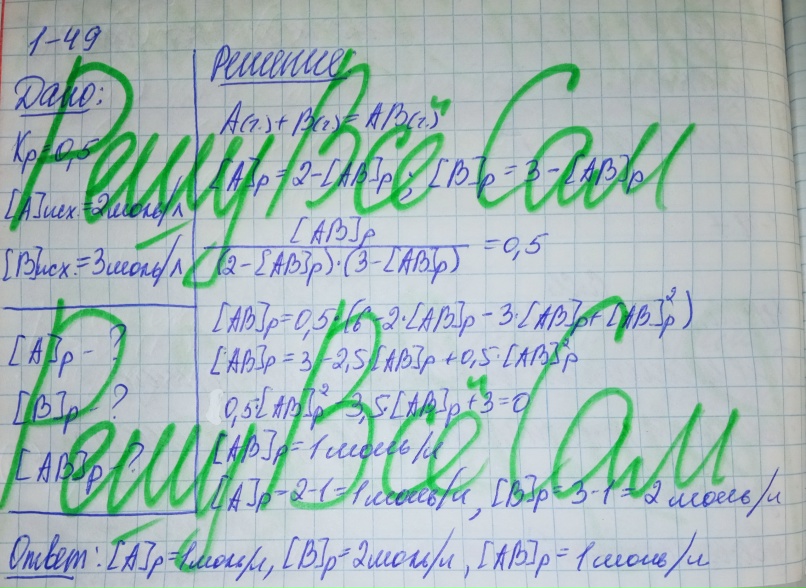 1-49
Дано:
Kр=0,5
[A]исх.=2моль/л
[B]исх.=3моль/л
[A]р - ?
[B]р - ?
[AB]р - ?
Решение
A(г.)+B(г.)=AB(г.)
[A]р=2-[AB]р; [B]р=3-[AB]р
[AB]р
(2-[AB]р)·(3-[AB]р) =0,5
[AB]р=0,5·(6-2·[AB]р-3·[AB]р+[AB]р²)
[AB]р=3-2,5[AB]р+0,5·[AB]р²
0,5·[AB]р²-3,5·[AB]р+3=0
[AB]р=1моль/л
[A]р=2-1=1моль/л, [B]р=3-1=2моль/л
Ответ: [A]р=1моль/л, [B]р=2моль/л, [AB]р=1моль/л
Решу Всё Сам
Решу Всё Сам